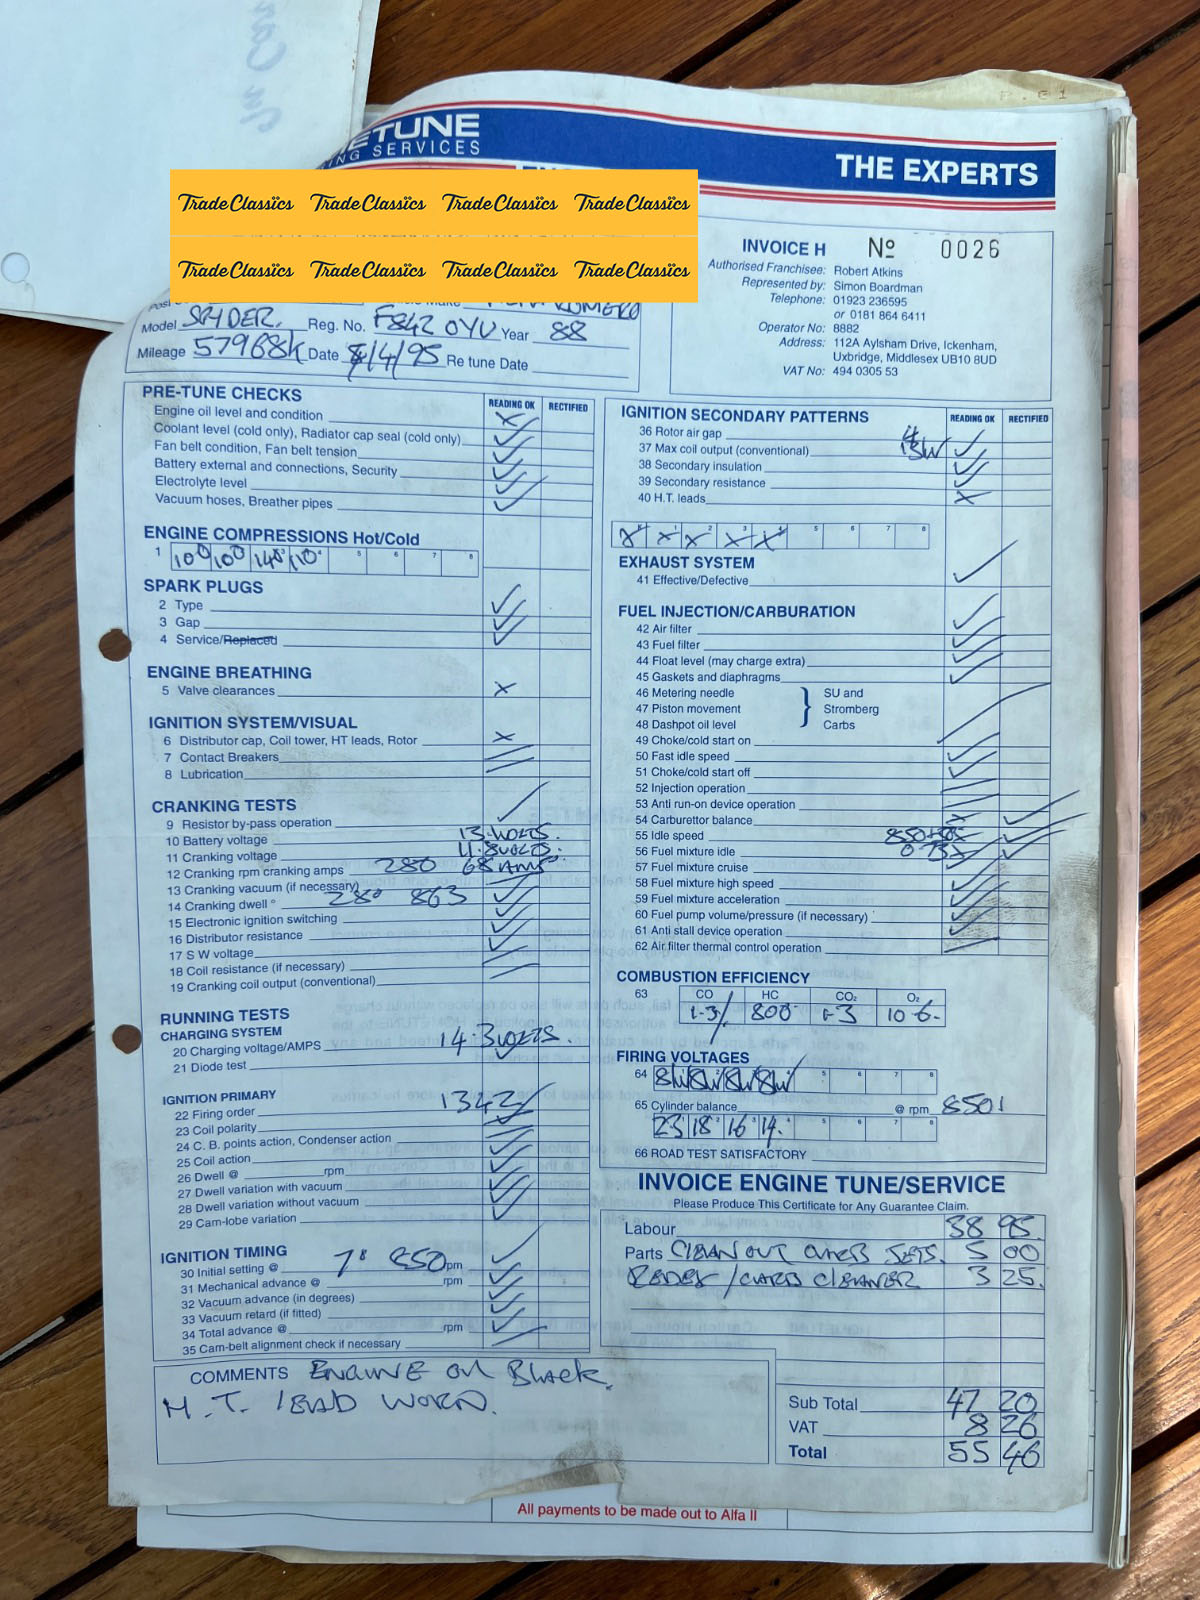 ETUNE
ING SERVICES
THE EXPERTS
TradeClassics TradeClassics TradeClassics TradeClassics
TradeClassics TradeClassics TradeClassics TradeClassics
INVOICE H Nº 0026
Authorised Franchisee: Robert Atkins
Represented by: Simon Boardman
Telephone: 01923 236595
or 0181 864 6411
Operator No: 8882
Address: 112A Aylsham Drive, Ickenham,
Uxbridge, Middlesex UB10 8UD
VAT No: 494 0305 53
Model SPYDER. Reg. No. F842 OYU Year 88
Mileage 57968K Date 8/4/95 Re tune Date
PRE-TUNE CHECKS READING OK RECTIFIED
Engine oil level and condition
Coolant level (cold only), Radiator cap seal (cold only)
Fan belt condition, Fan belt tension
Battery external and connections, Security
Electrolyte level
Vacuum hoses, Breather pipes
ENGINE COMPRESSIONS Hot/Cold
1 100 100 140 110 5 6 7 8
SPARK PLUGS
2 Type
3 Gap
4 Service/Replaced
ENGINE BREATHING
5 Valve clearances
IGNITION SYSTEM/VISUAL
6 Distributor cap, Coil tower, HT leads, Rotor
7 Contact Breakers
8 Lubrication
CRANKING TESTS
9 Resistor by-pass operation
10 Battery voltage 13.VOLTS.
11 Cranking voltage 11.8VOLTS.
12 Cranking rpm cranking amps 280 68 AMPS
13 Cranking vacuum (if necessary)
14 Cranking dwell ° 280 863
15 Electronic ignition switching
16 Distributor resistance
17 S W voltage
18 Coil resistance (if necessary)
19 Cranking coil output (conventional)
RUNNING TESTS
CHARGING SYSTEM
20 Charging voltage/AMPS 14.3VOLTS.
21 Diode test
IGNITION PRIMARY
22 Firing order 1342
23 Coil polarity
24 C. B. points action, Condenser action
25 Coil action
26 Dwell @ rpm
27 Dwell variation with vacuum
28 Dwell variation without vacuum
29 Cam-lobe variation
IGNITION TIMING
30 Initial setting @ 7° 850 rpm
31 Mechanical advance @ rpm
32 Vacuum advance (in degrees)
33 Vacuum retard (if fitted)
34 Total advance @ rpm
35 Cam-belt alignment check if necessary
COMMENTS ENGINE OIL BLACK.
H.T. LEAD WORN.
IGNITION SECONDARY PATTERNS READING OK RECTIFIED
36 Rotor air gap
37 Max coil output (conventional)
38 Secondary insulation
39 Secondary resistance
40 H.T. leads
5 6 7 8
EXHAUST SYSTEM
41 Effective/Defective
FUEL INJECTION/CARBURATION
42 Air filter
43 Fuel filter
44 Float level (may charge extra)
45 Gaskets and diaphragms
46 Metering needle
47 Piston movement
48 Dashpot oil level
} SU and
Stromberg
Carbs
49 Choke/cold start on
50 Fast idle speed
51 Choke/cold start off
52 Injection operation
53 Anti run-on device operation
54 Carburettor balance
55 Idle speed
56 Fuel mixture idle
57 Fuel mixture cruise
58 Fuel mixture high speed
59 Fuel mixture acceleration
60 Fuel pump volume/pressure (if necessary)
61 Anti stall device operation
62 Air filter thermal control operation
COMBUSTION EFFICIENCY
63 CO HC CO2 O2
1.3/ 800 10 6.
FIRING VOLTAGES
64 5 6 7 8
65 Cylinder balance @ rpm 850
23 18 16 14. 5 6 7 8
66 ROAD TEST SATISFACTORY
INVOICE ENGINE TUNE/SERVICE
Please Produce This Certificate for Any Guarantee Claim.
Labour 38 95.
Parts CLEAN OUT CARBS JETS. 5 00
REDEX /CARB CLEANER 3 25.
Sub Total 47 20
VAT 8 26
Total 55 46
All payments to be made out to Alfa II